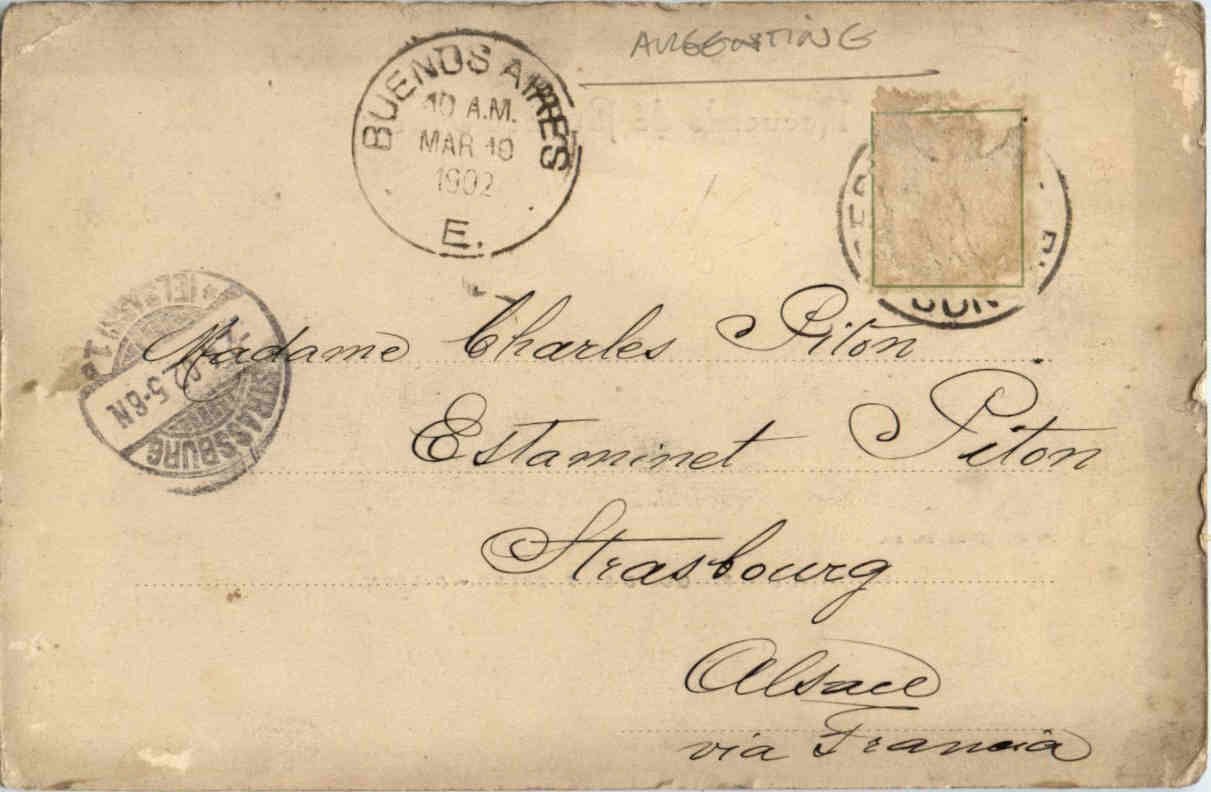 ARGENTINE
BUENOS AIRES
10 A.M.
MAR 10
1902
E.
STRASSBURG
5-8N
Madame Charles Piton
Estaminet Piton
Strasbourg
Alsace
via Francia